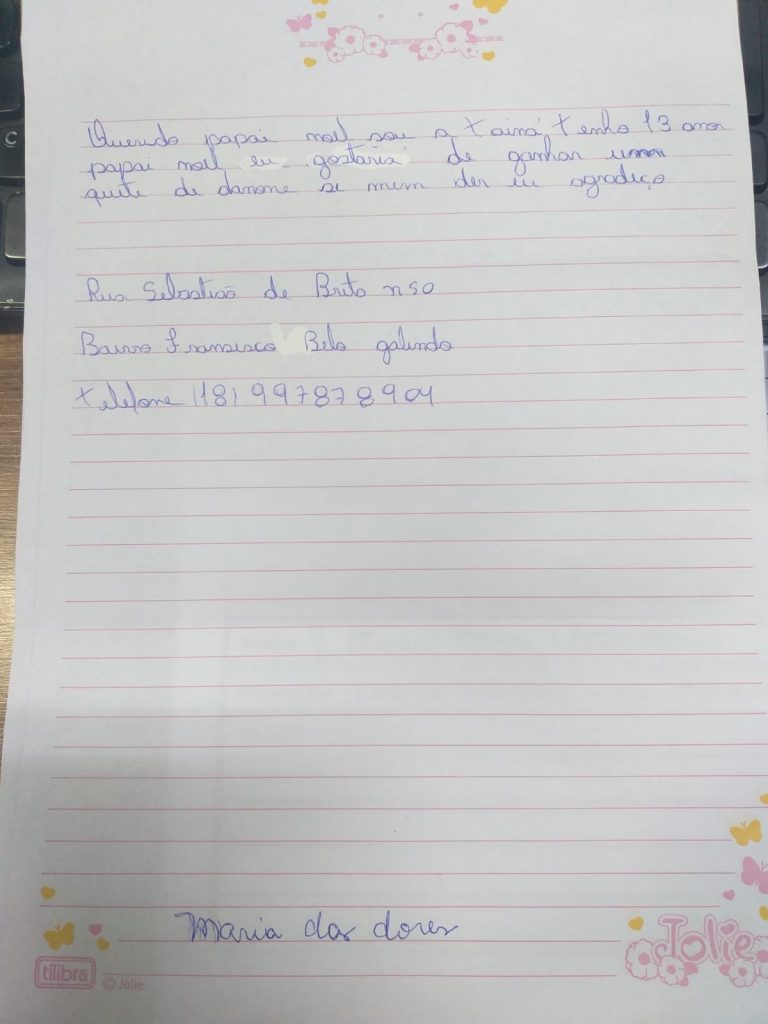 Querido papai noel sou a tainá, tenho 13 anos
papai noel eu gostaria de ganhar uma
quite de danone se mim der eu agradeço
Rua Sebastião de Brito n50
Bairro Francisco Belo galindo
telefone (18) 997878904
Maria das dores
tilibra
© Jolie
Jolie
C